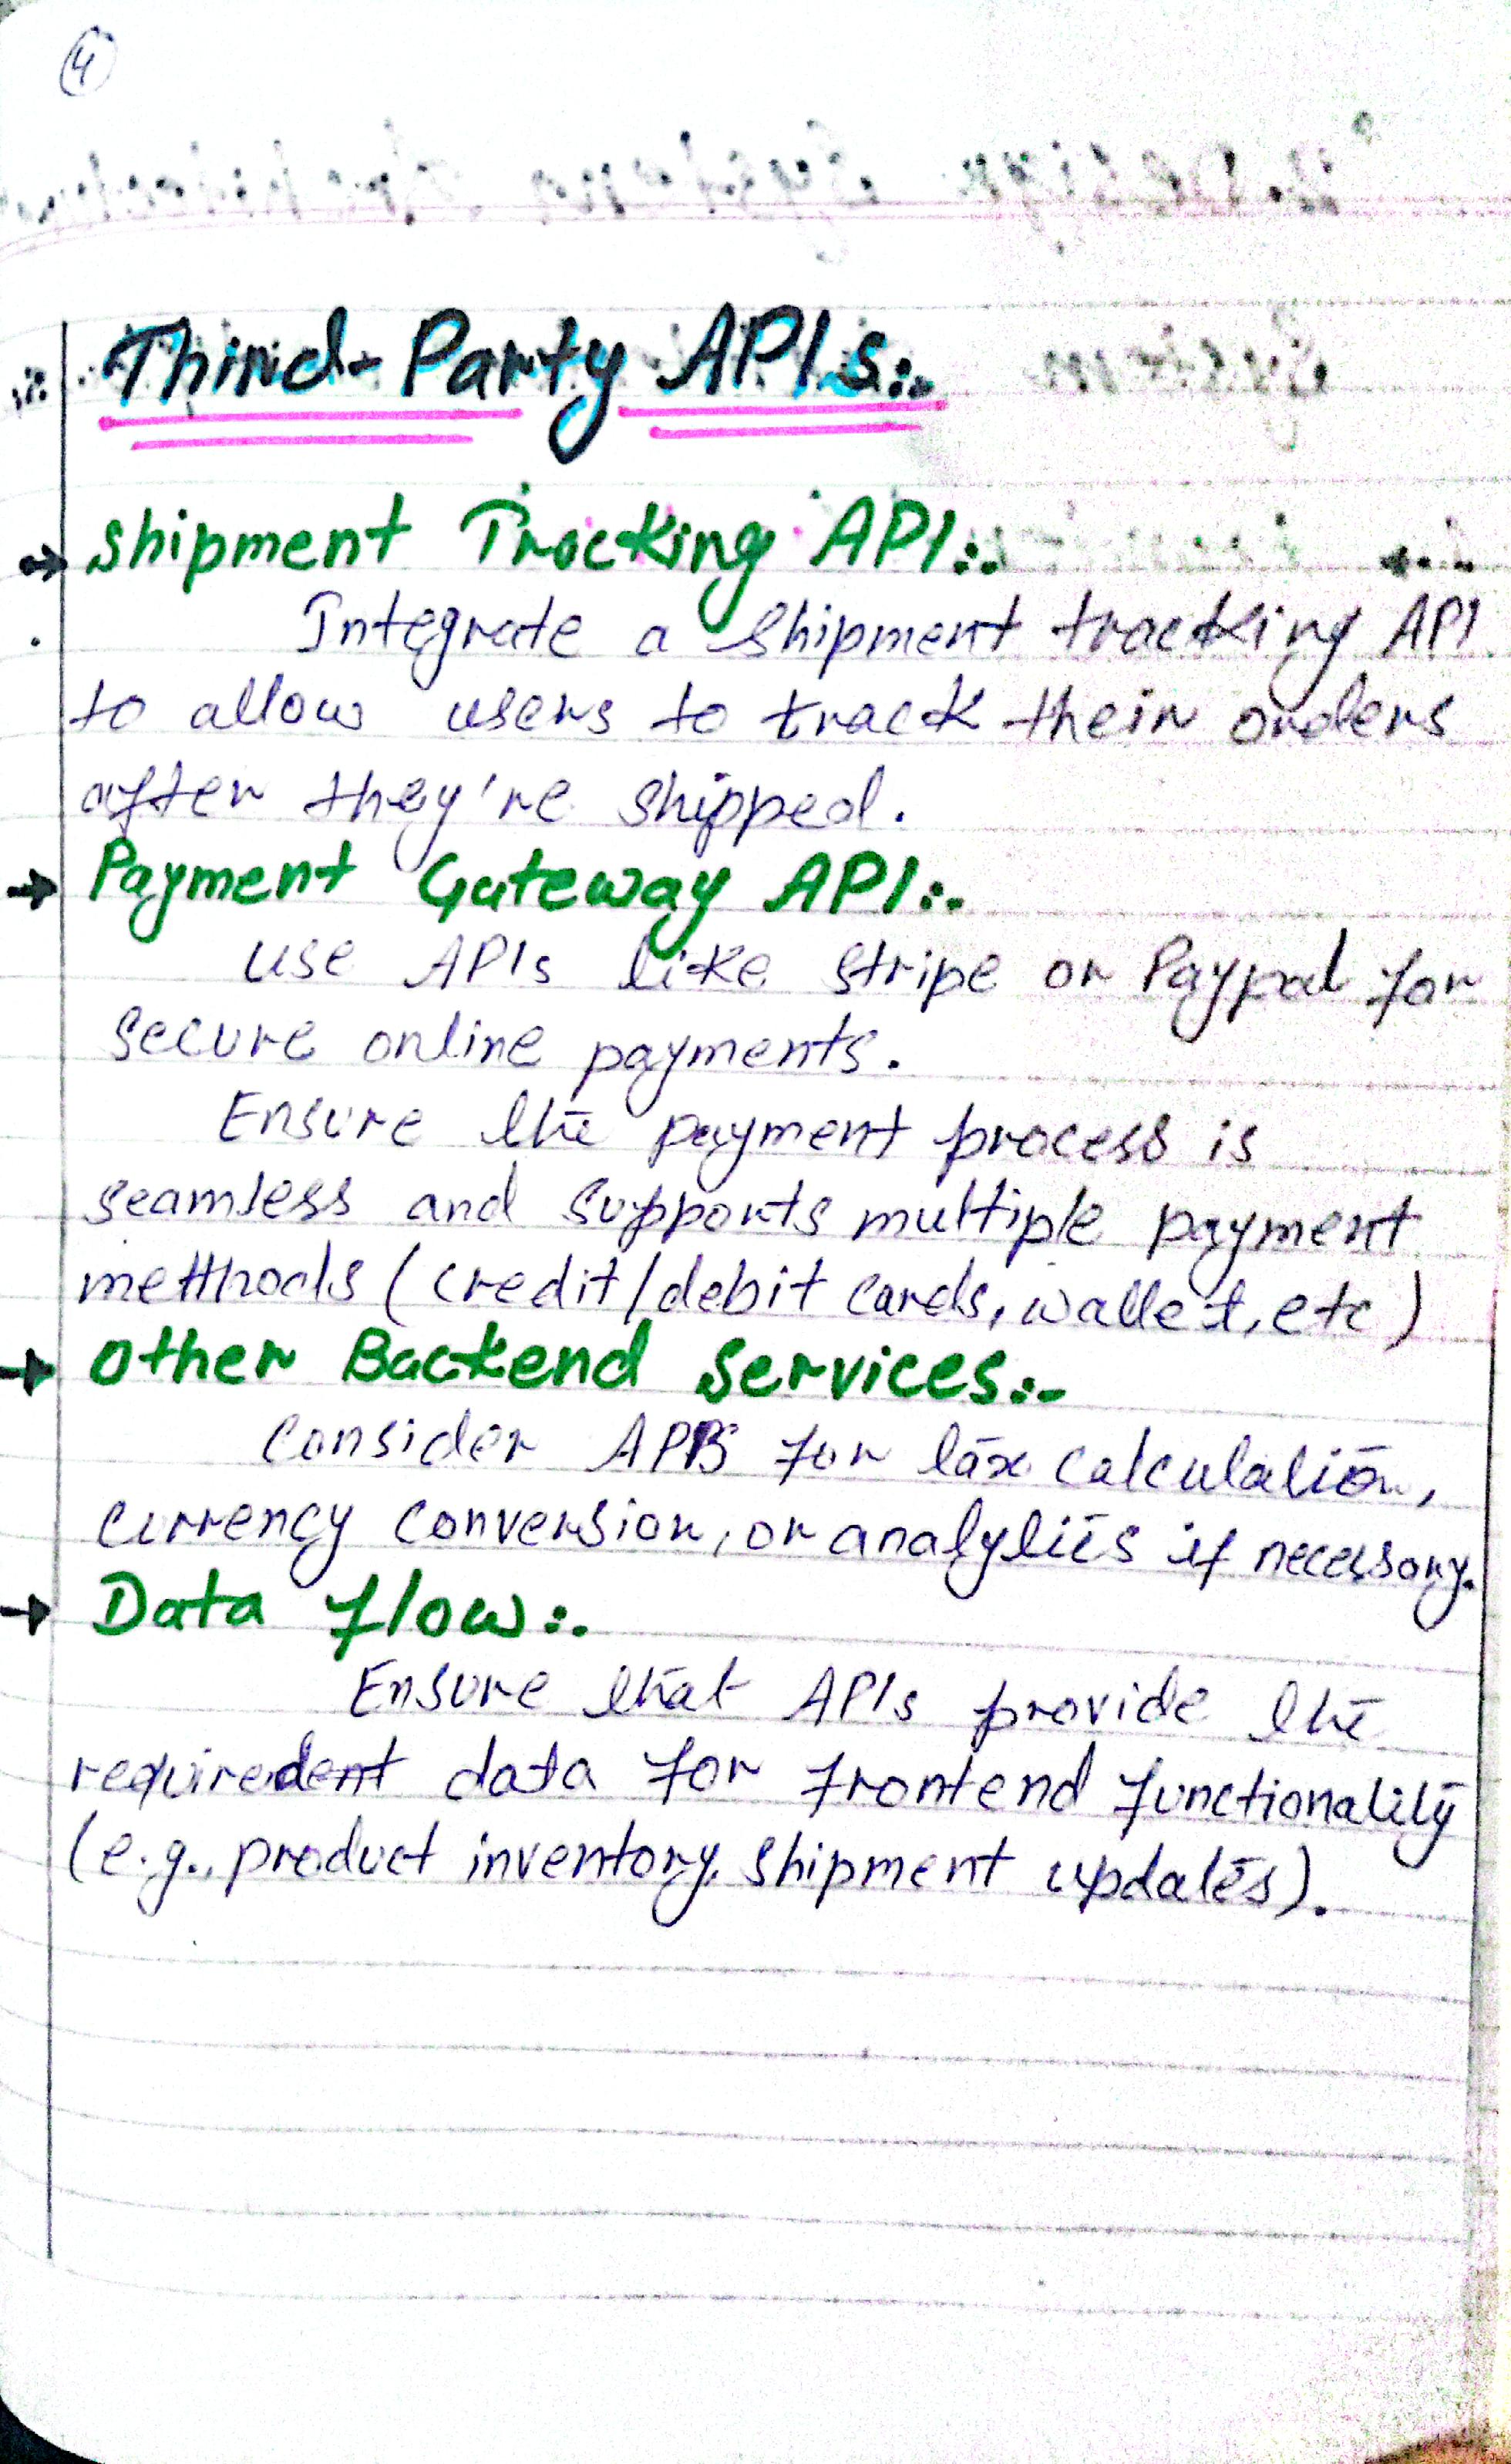 4
Third-Party APIs:-
→ Shipment Tracking API:-
Integrate a shipment tracking API
to allow users to track their orders
after they're shipped.
→ Payment Gateway API:-
Use APIs like stripe or Paypal for
secure online payments.
Ensure the payment process is
seamless and supports multiple payment
methods (credit/debit cards, wallet, etc)
→ Other Backend Services:-
Consider APIs for tax calculation,
currency conversion, or analytics if necessary.
→ Data flow:-
Ensure that APIs provide the
requiredent data for frontend functionality
(e.g., product inventory, shipment updates).